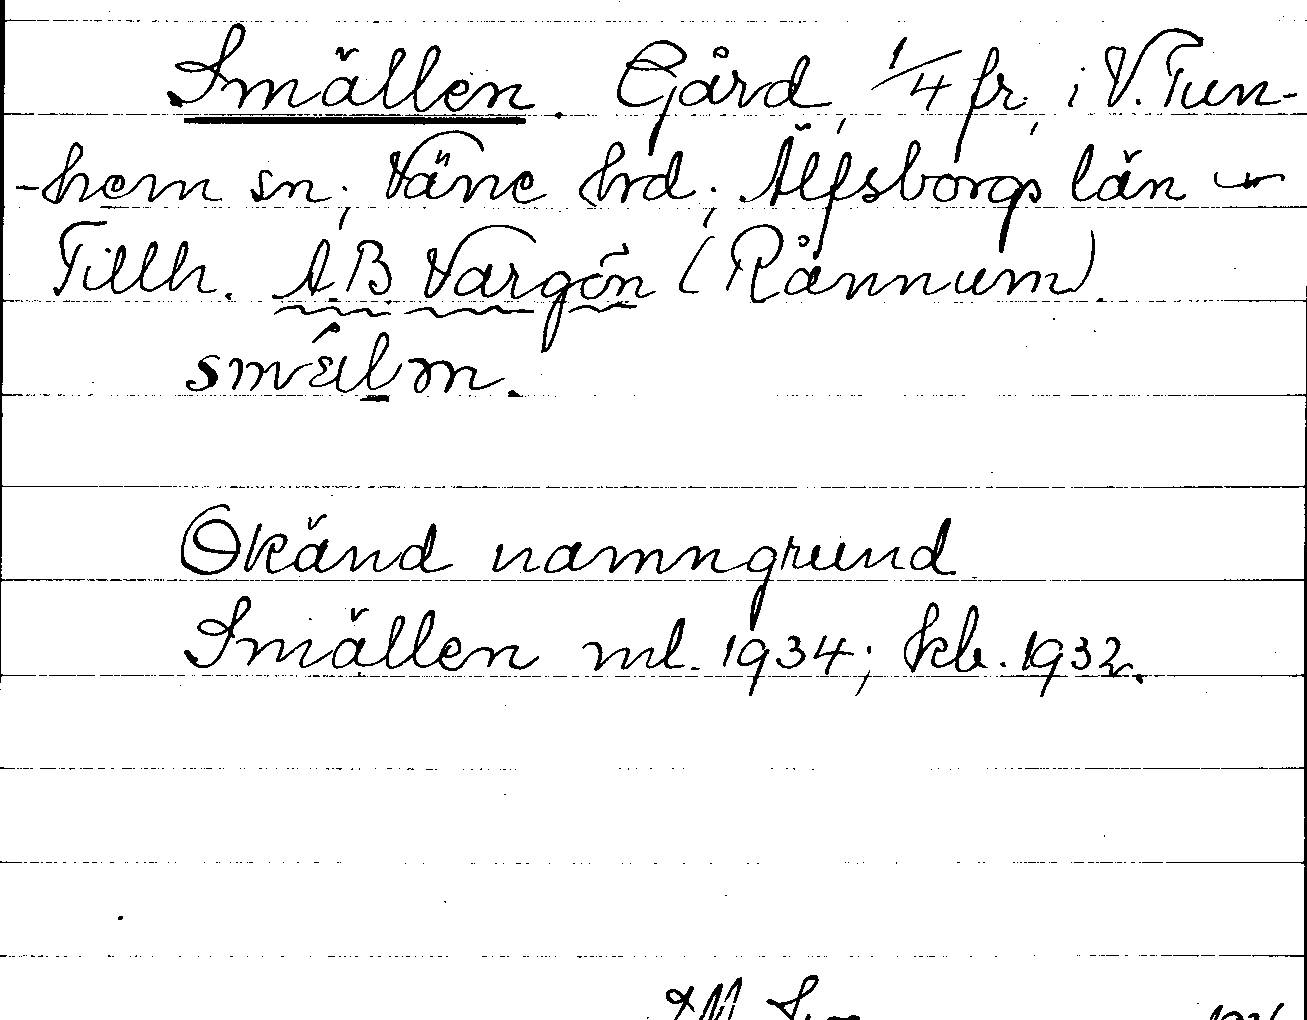 Smällen. Gård, 1/4 fr, i V. Tun-
-hem sn; Väne hrd; Älfsborgs län
Tillh. A.B. Vargön (Rånnum).
Okänd namngrund
Smällen ml. 1934; kb. 1932.